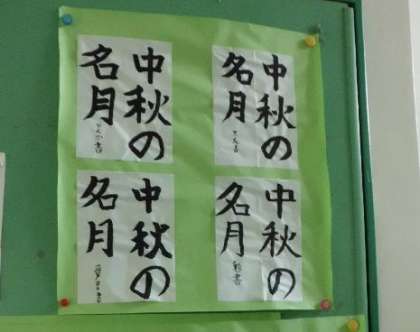 中秋の
名月
中秋の
名月
中秋の
名月
中秋の
名月